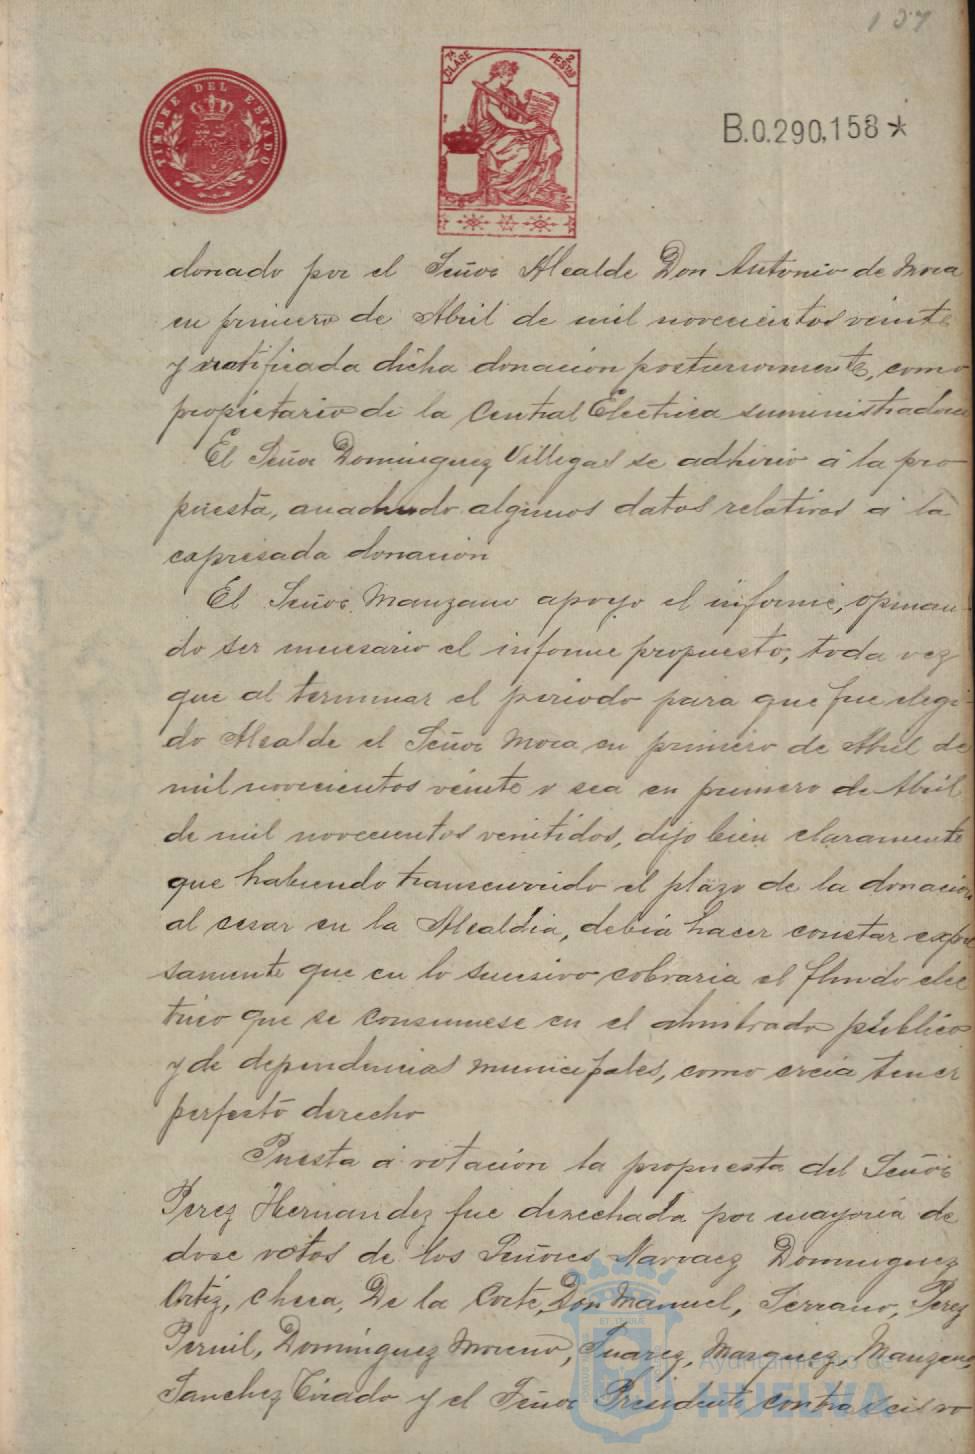 137
TIMBRE DEL ESTADO
7ª CLASE
2 PESTAS
B.0.290,158*
donado por el Señor Alcalde Don Antonio de Mora
en primero de Abril de mil novecientos veinte
y ratificada dicha donación posteriormente, como
propietario de la Central Electrica suministradora
El Señor Dominguez Villegas se adhirio á la pro
puesta, anadiendo algunos datos relativos á la
expresada donación
El Señor Manzano apoyo el informe, opinan-
do ser necesario el informe propuesto, toda vez
que al terminar el periodo para que fue elegi-
do Alcalde el Señor Mora en primero de Abril de
mil novecientos veinte o sea en primero de Abril
de mil novecientos venitidos, dijo bien claramente
que habiendo transcurrido el plazo de la donación
al cesar en la Alcaldia, debia hacer constar expre
samente que en lo sucesivo cobraria el fluido elec
trico que se consumiese en el alumbrado público
y de dependencias municipales, como creia tener
perfecto derecho
Puesta á votación la propuesta del Señor
Perez Hernandez fue desechada por mayoria de
doce votos de los Señores Narvaez Dominguez
Ortiz, Checa, De la Corte, Don Manuel, Serrano, Perez
Pernil, Domínguez Moreno, Suarez, Marquez, Manzano,
Sanchez Tirado y el Señor Presidente contra seis vo
Ayuntamiento de
HUELVA